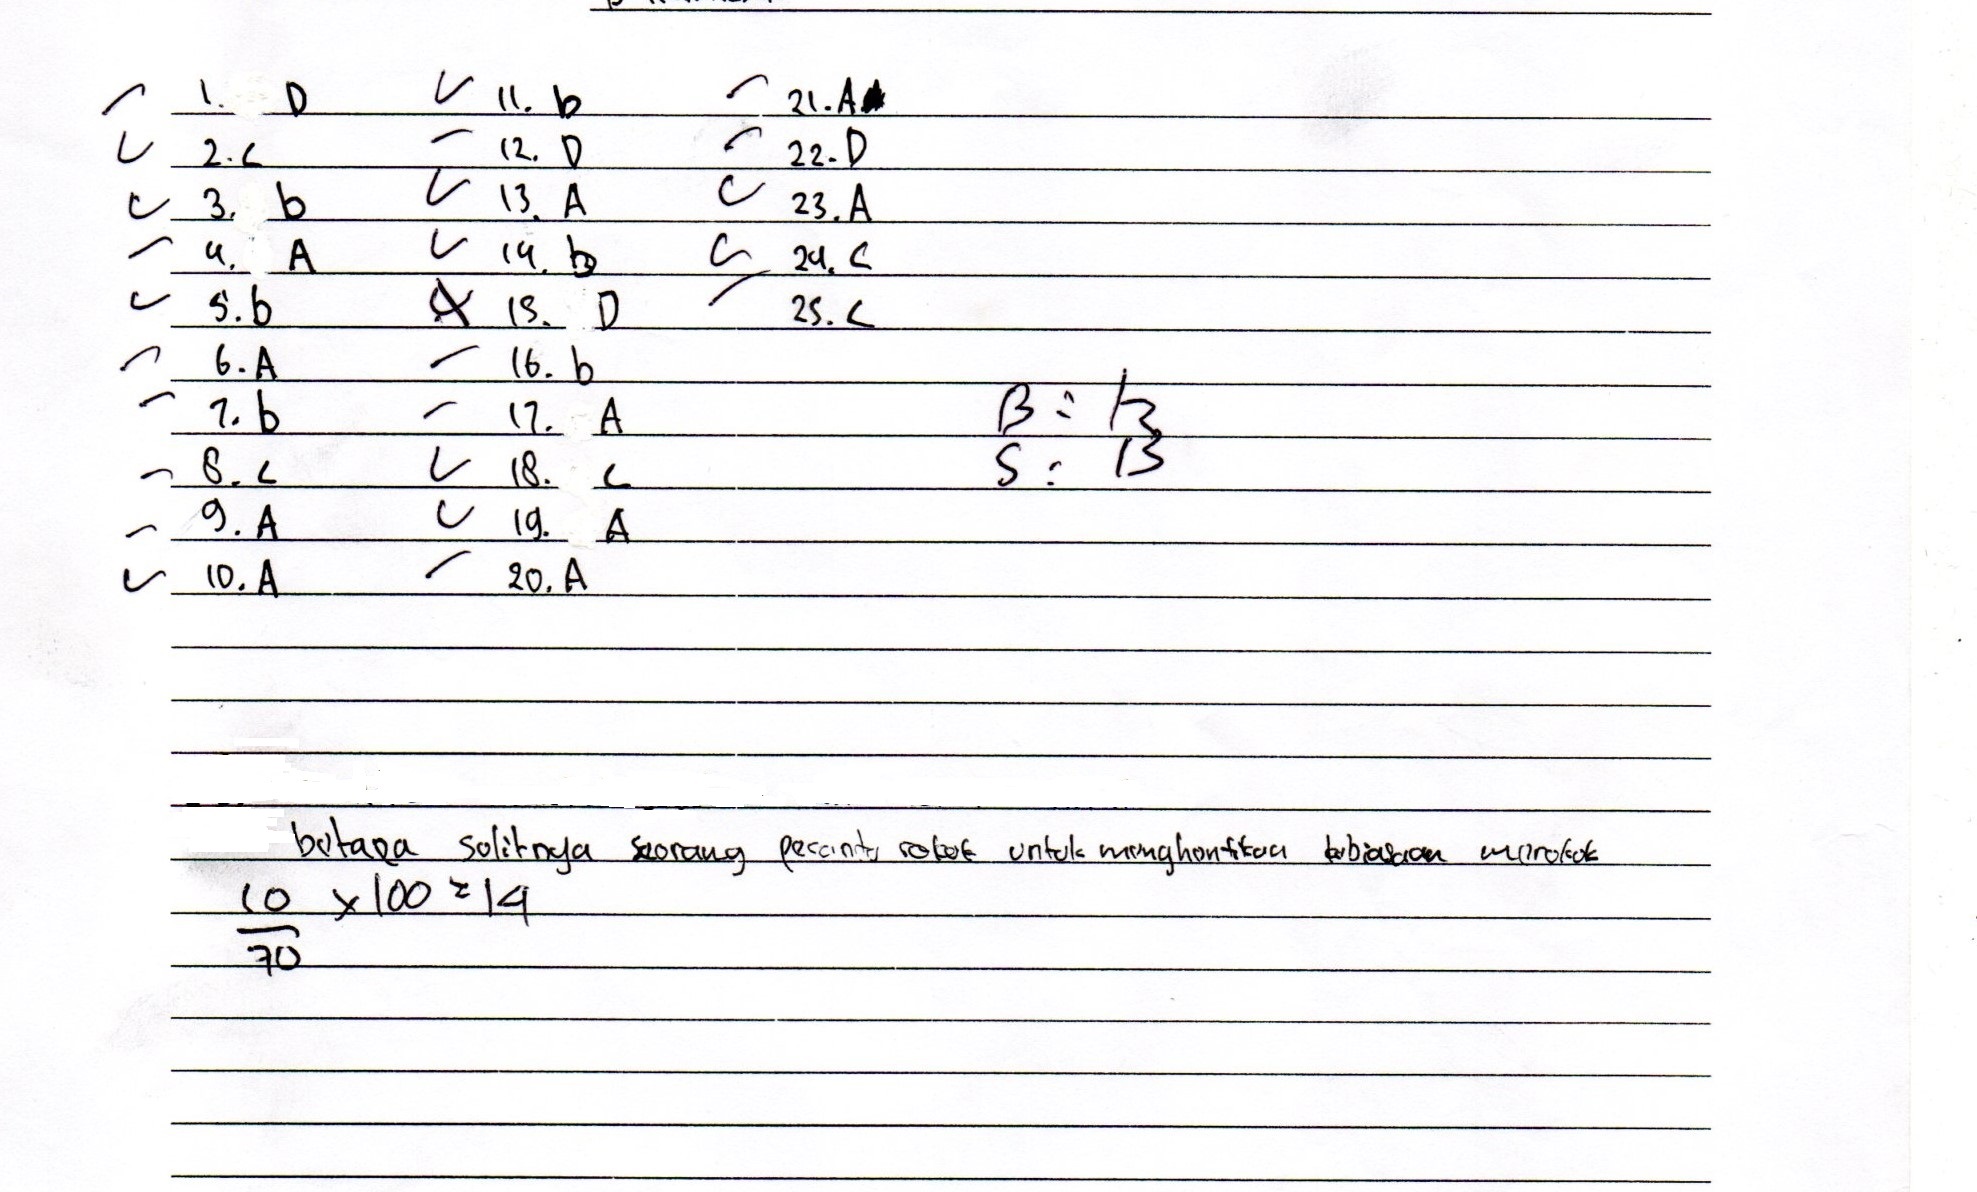 1. D
2. C
3. b
4. A
5. b
6. A
7. b
8. C
9. A
10. A
11. b
12. D
13. A
14. b
15. D
16. b
17. A
18. C
19. A
20. A
21. A
22. D
23. A
24. C
25. C
B : 12
S : 13
betapa sulitnya seorang pecinta rokok untuk menghentikan kebiasaan merokok
10/70 x 100 = 14